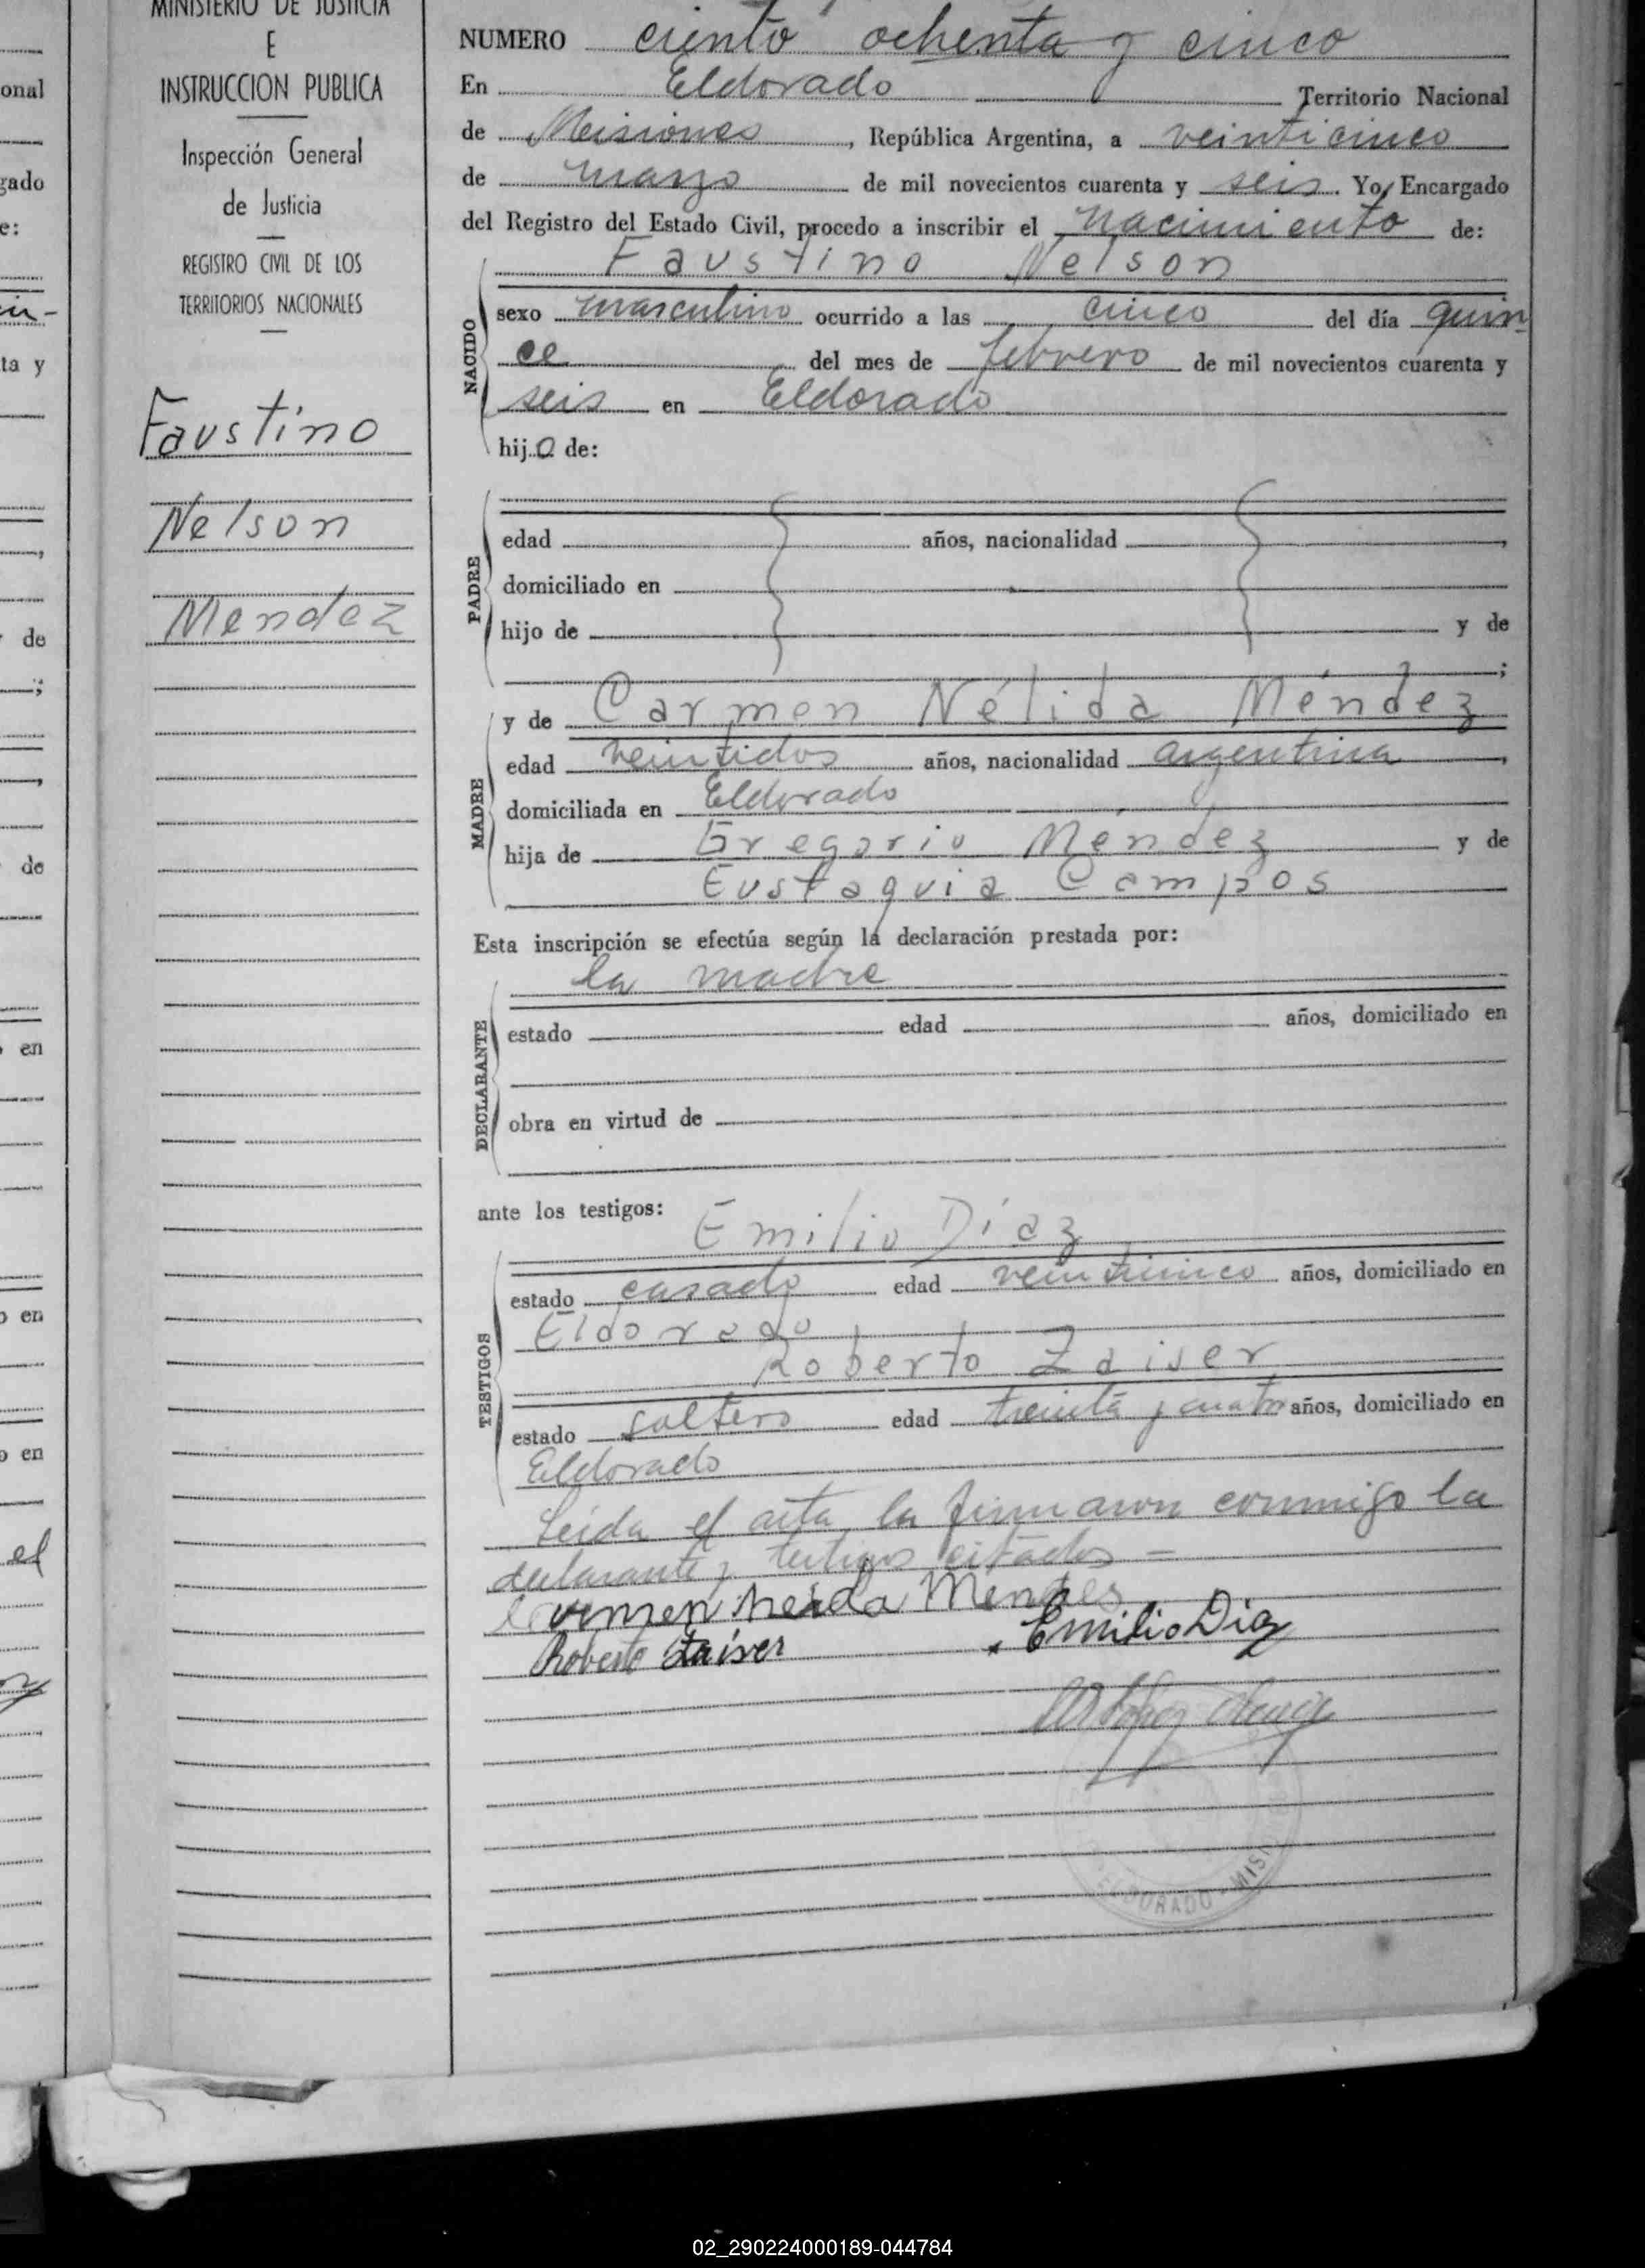 MINISTERIO DE JUSTICIA
E
INSTRUCCION PUBLICA
Inspección General
de Justicia
REGISTRO CIVIL DE LOS
TERRITORIOS NACIONALES
Faustino
Nelson
Mendez
onal
gado
e:
in-
ta y
de
de
en
o en
o en
el
NUMERO ciento ochenta y cinco
En Eldorado Territorio Nacional
de Misiones, República Argentina, a veinticinco
de marzo de mil novecientos cuarenta y seis. Yo, Encargado
del Registro del Estado Civil, procedo a inscribir el nacimiento de:
Faustino Nelson
NACIDO
sexo masculino ocurrido a las cinco del día quin-
ce del mes de febrero de mil novecientos cuarenta y
seis en Eldorado
hijo de:
PADRE
edad años, nacionalidad ,
domiciliado en
hijo de y de
;
MADRE
y de Carmen Nélida Méndez
edad veintidos años, nacionalidad argentina,
domiciliada en Eldorado
hija de Gregorio Méndez y de
Eustaquia Campos
Esta inscripción se efectúa según la declaración prestada por:
la madre
DECLARANTE
estado edad años, domiciliado en
obra en virtud de
ante los testigos:
Emilio Díaz
TESTIGOS
estado casado edad veinticinco años, domiciliado en
Eldorado
Roberto Zaiser
estado soltero edad treinta y cuatro años, domiciliado en
Eldorado
Leida el acta, la firmaron conmigo la
declarante y testigos citados -
Carmen neida Mendes
Roberto Zaiser
Emilio Diaz
ELDORADO - MISI
02_290224000189-044784